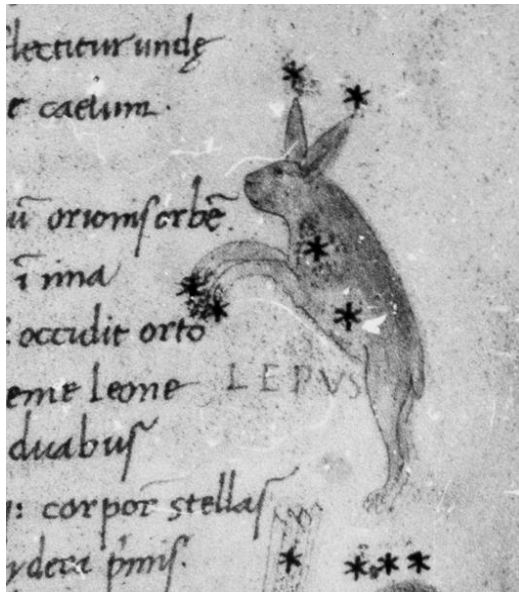 flectitur undę
e caelum.
ū orionis orbē.
ī ima
occidit orto
eme leone
LEPVS
duabus
: corpor̄ stellas
dera p̄mis.